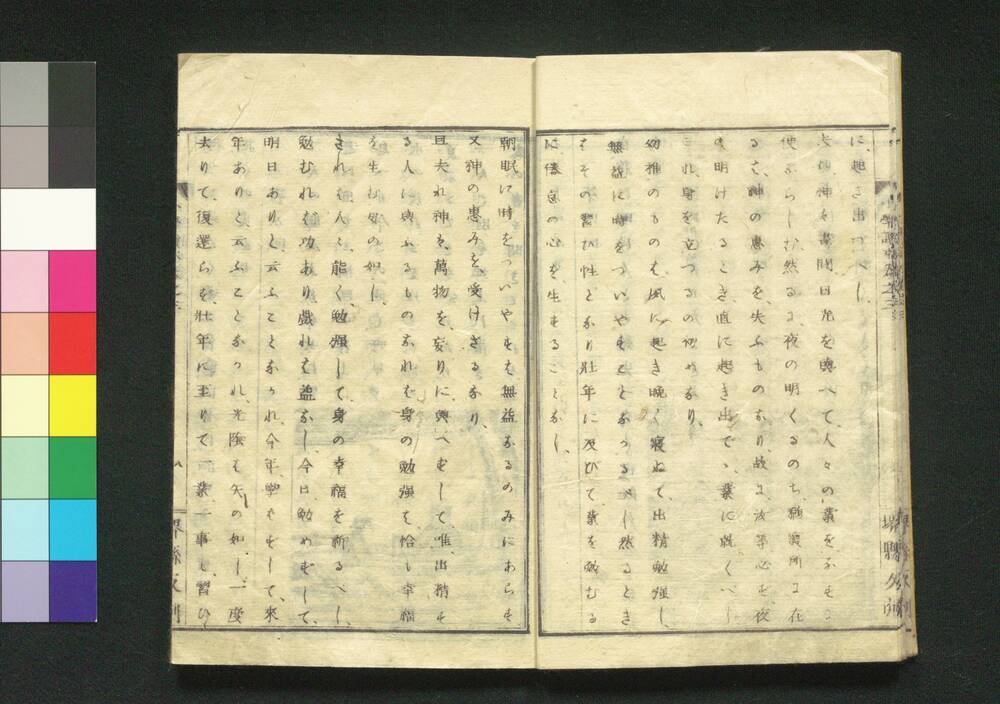 に、起き出づべし、
夫れ、神を、晝間、日光を、與へて、人々の、業をなさし
使むらし、む、然るに、夜の明くるのち、猶、寢所に在
るを、神の惠みを、失ふものなり、故に、汝等、心を、夜
の明けたるとき、直に起き出で、業に就くべし
これ身を立つるの初めなり、
幼稚のものは、夙に起き晩く寢ねて、出精勉强し、
無益に時をついやすことなかるべし然るとき
はその習ひ性となり壯年に及びて、業を勉むる
に倦怠の心を、生することなし、
朝眠に時をついやすは無益なるのみにあらず
又神の惠みを、受けざるなり、
且夫れ神は、萬物を、妄りに、與へずして、唯、出精す
る人に與ふるものなれは身の勉强は、恰も幸福
を生む母の如し、
されは、人々、能く、勉强して、身の幸福を祈るべし、
勉むれは功あり戲れは益なし、今日、勉めずして、
明日ありと云ふことなかれ、今年、學はずして、來
年ありと云ふことなかれ、光陰は矢の如し、一度
去りて、復還らす壯年に至りて、一業一事も習ひ